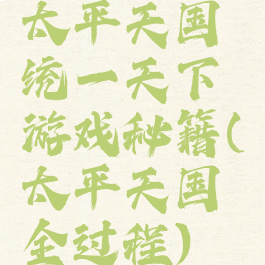 太平天国
统一天下
游戏秘籍(
太平天国
全过程)